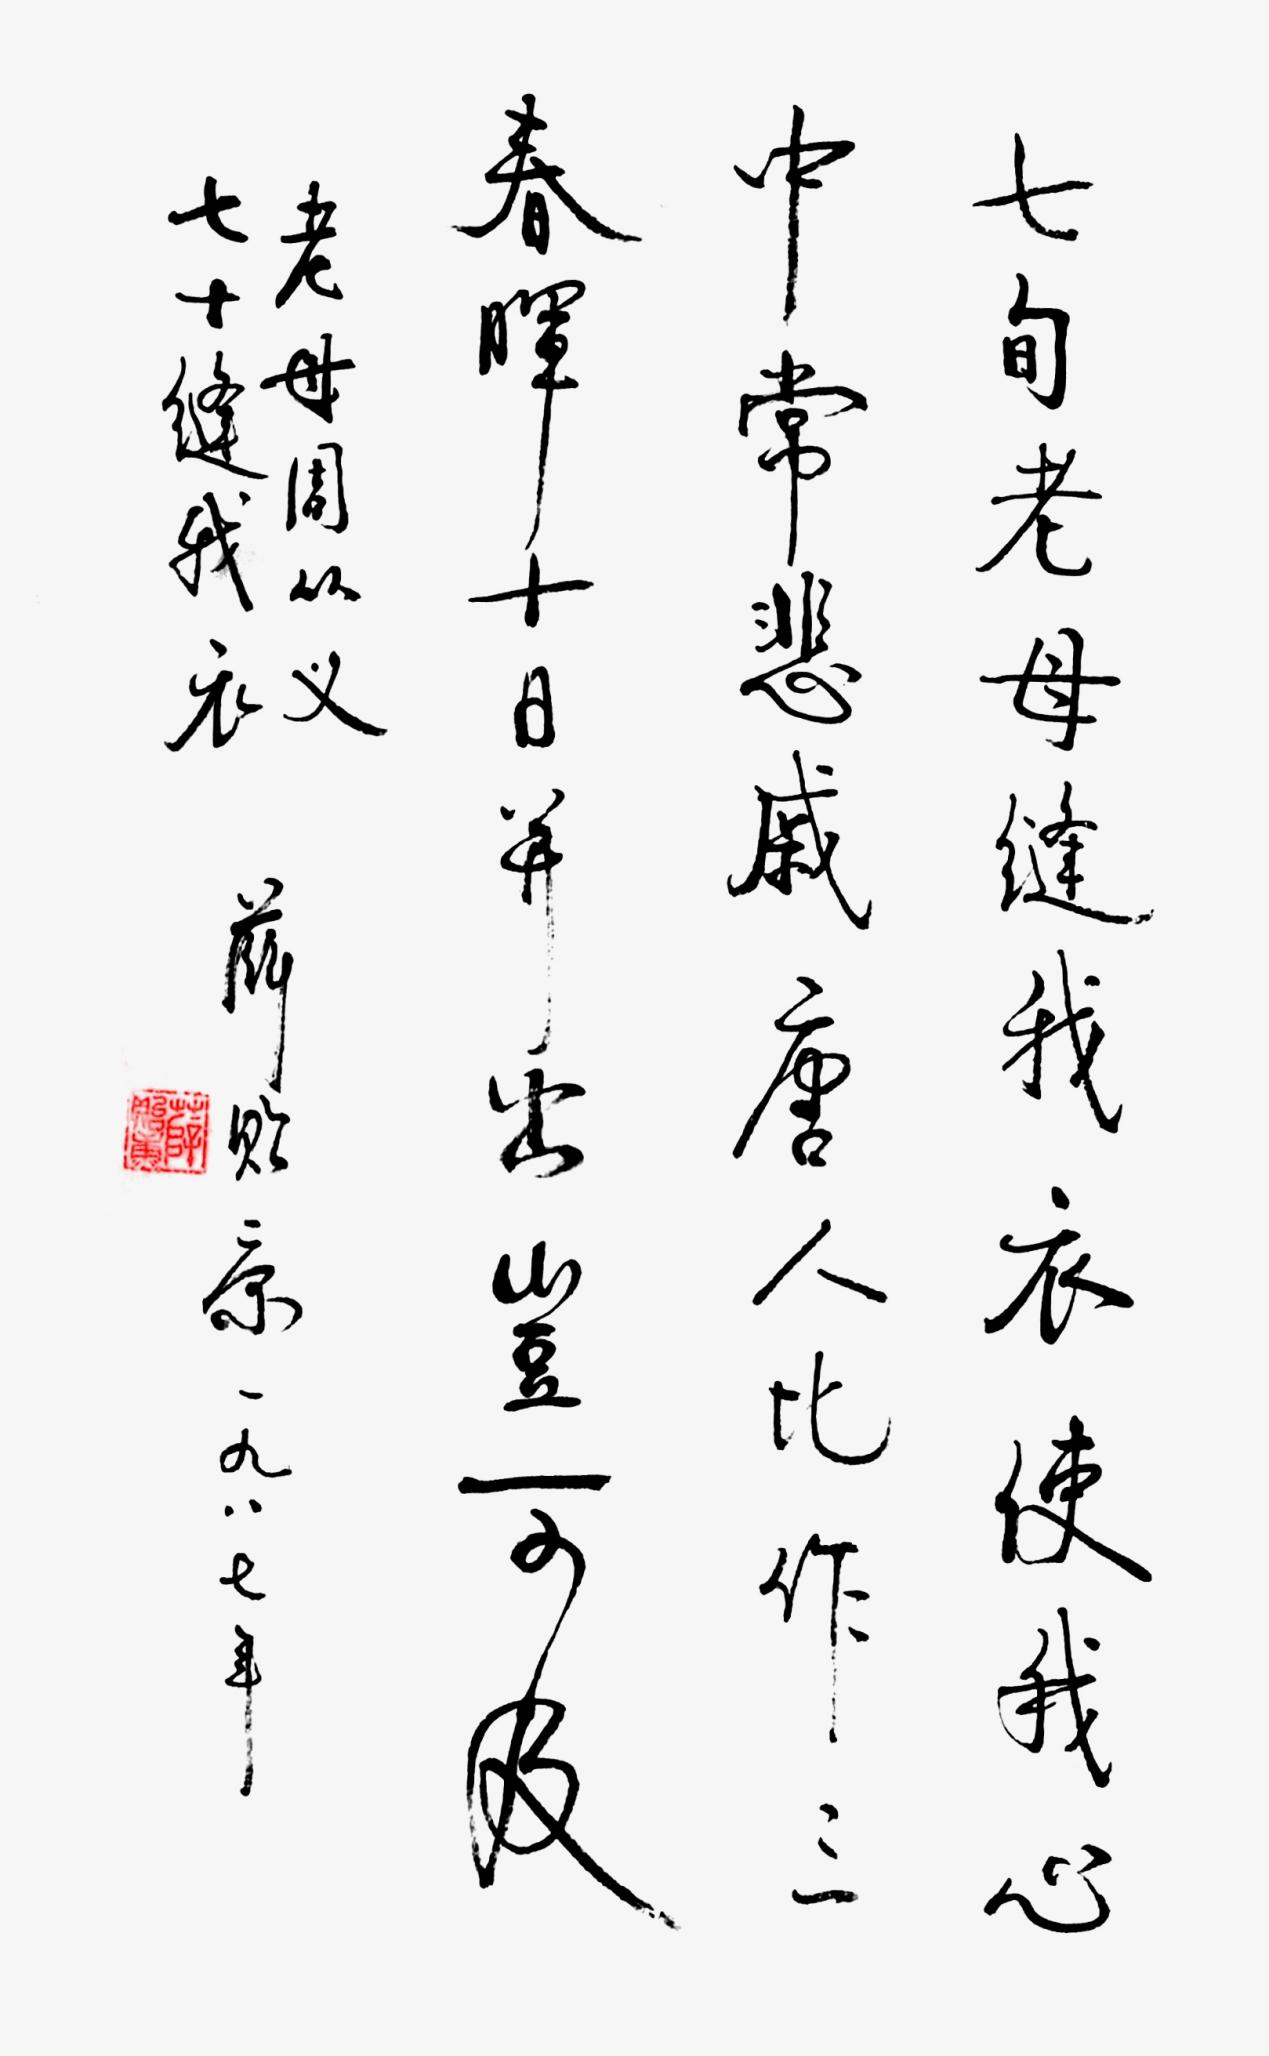 七旬老母缝我衣使我心
中常悲戚唐人比作三
春晖十日并出岂可及
老母周从义
七十缝我衣
薛贻京一九八七年